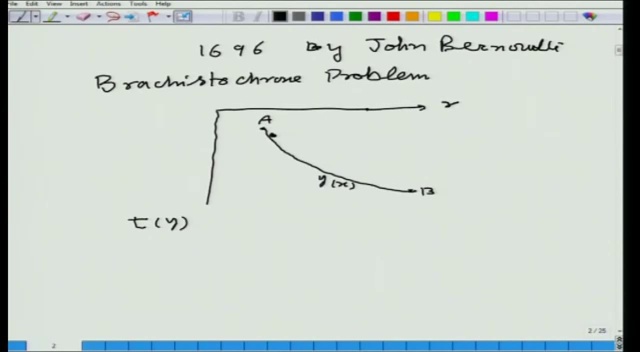 Edit View Insert Actions Tools Help
1696 By John Bernoulli
Brachistochrone Problem
x
A
y(x)
B
t(y)
2 / 25
2